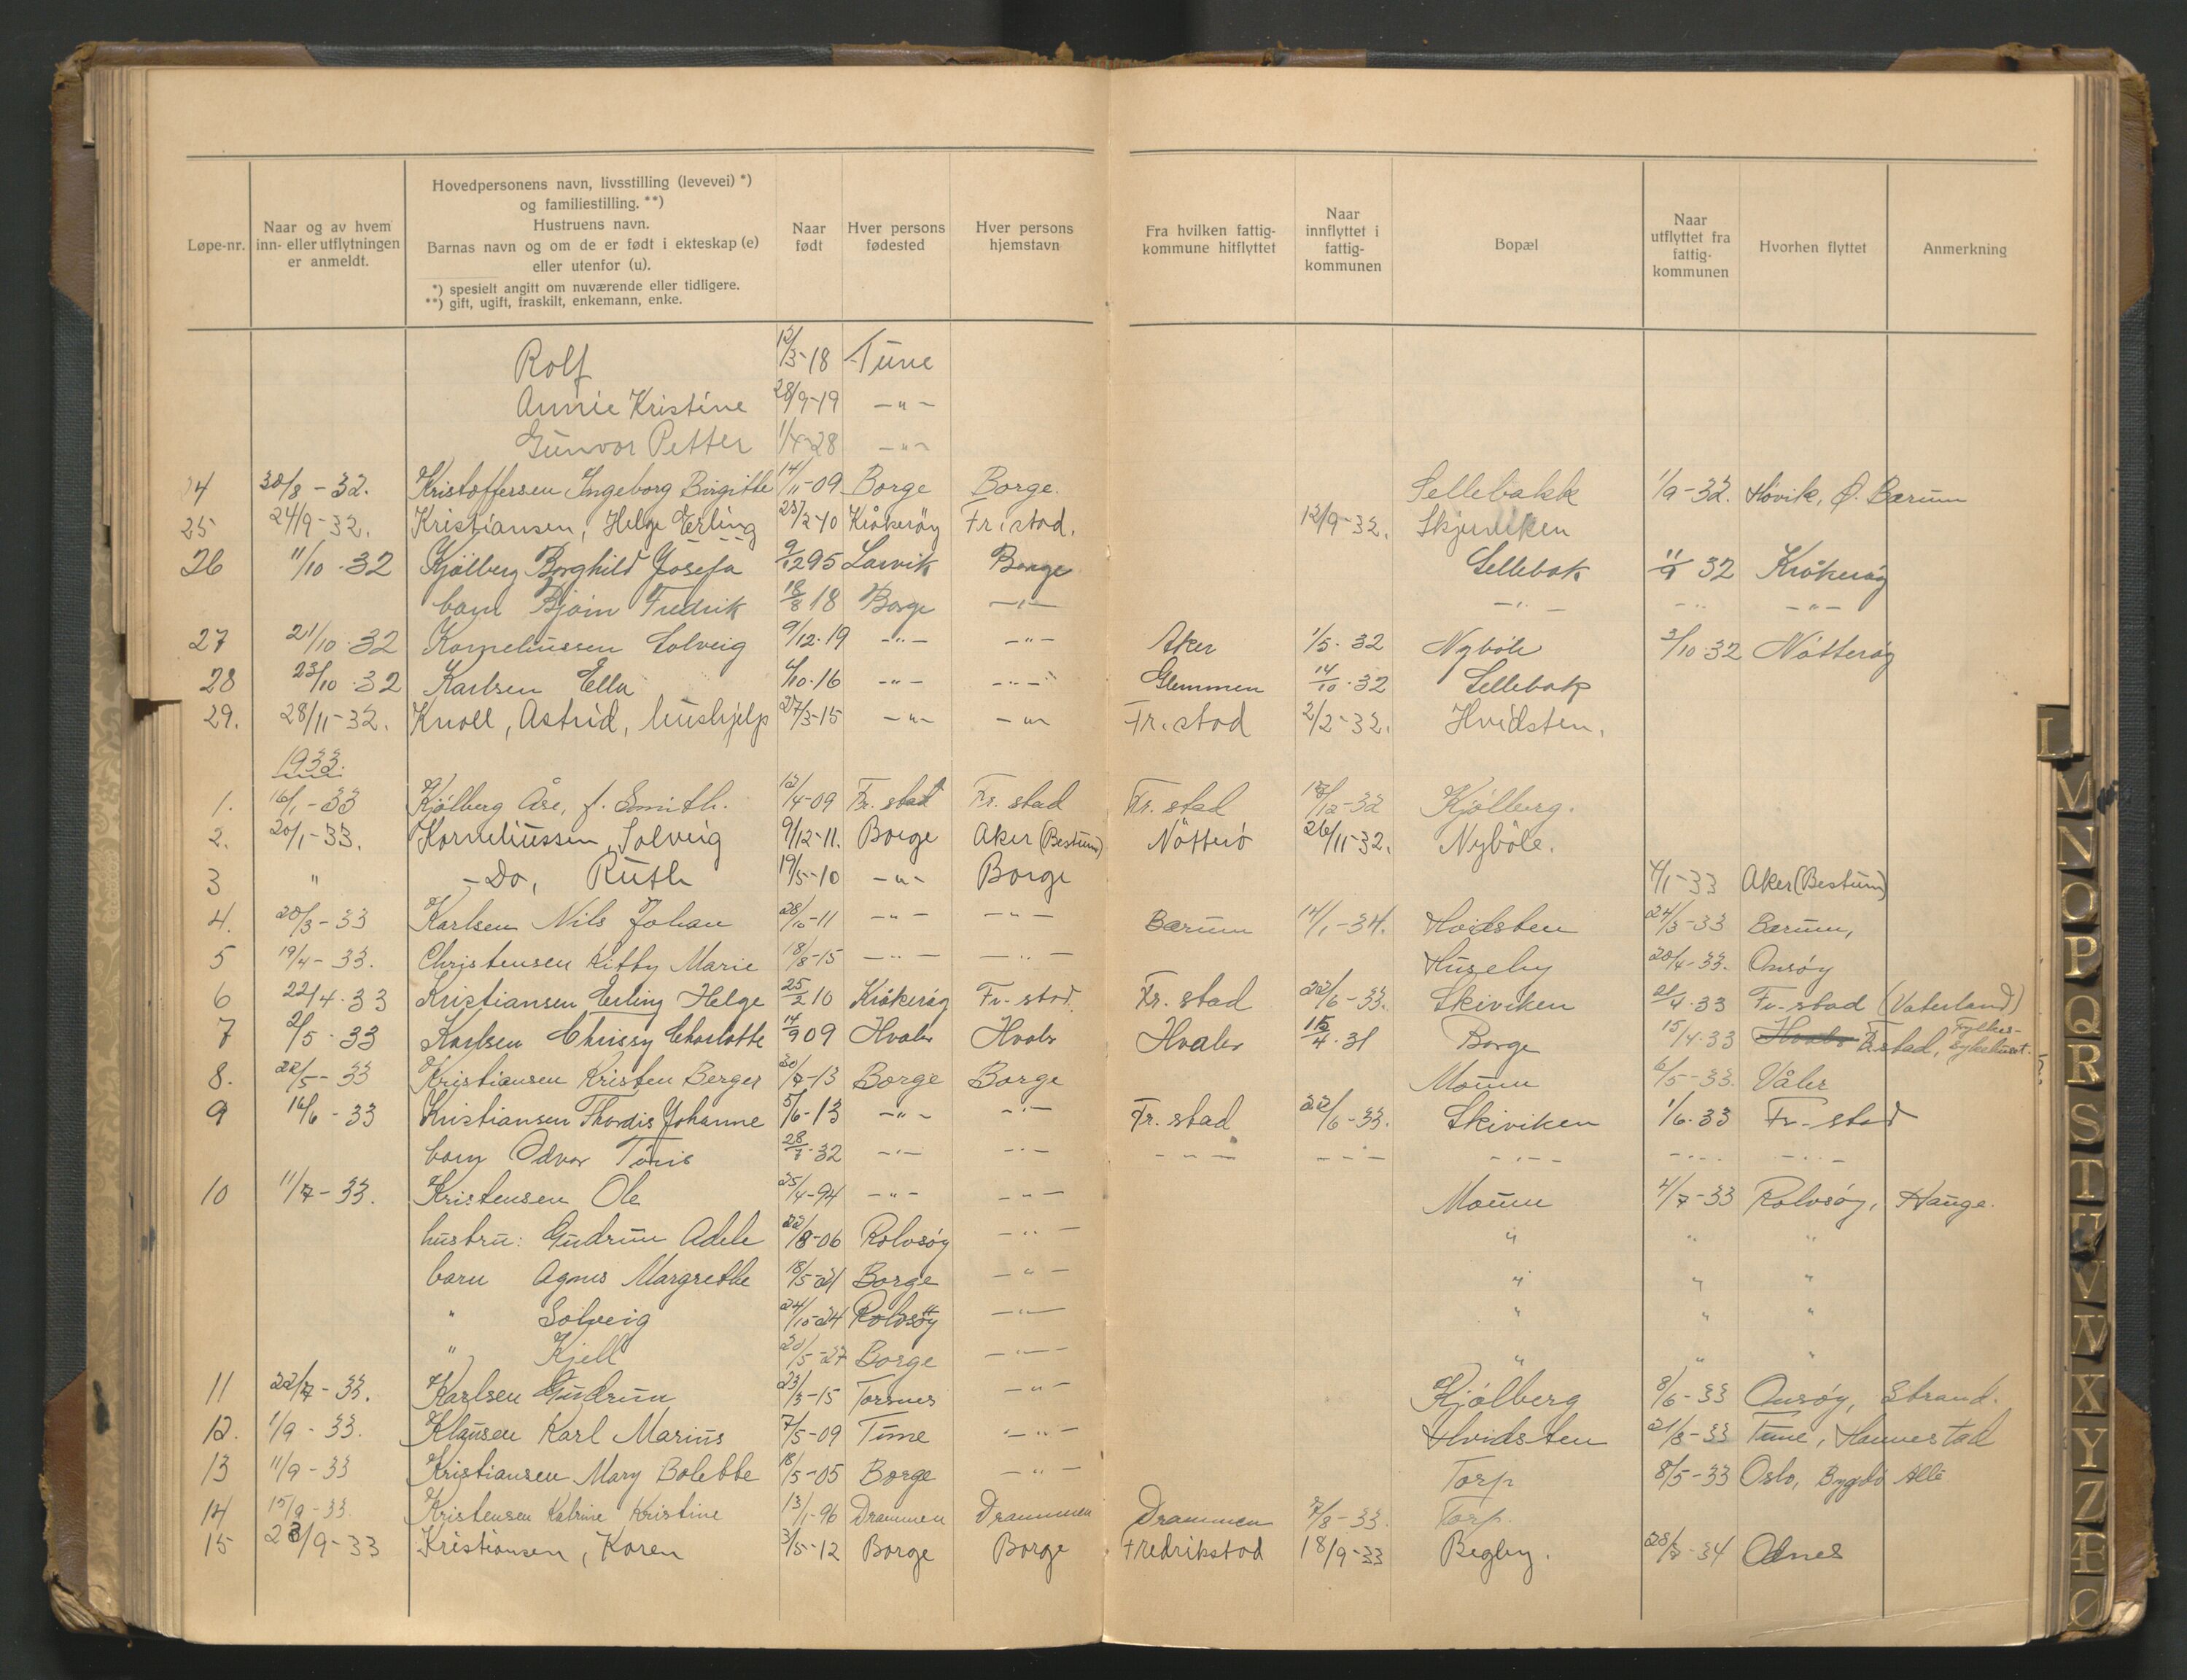 Løpe-nr. | Naar og av hvem inn- eller utflytningen er anmeldt. | Hovedpersonens navn, livsstilling (levevei) *) og familiestilling. **) Hustruens navn. Barnas navn og om de er født i ekteskap (e) eller utenfor (u). *) spesielt angitt om nuværende eller tidligere. **) gift, ugift, fraskilt, enkemann, enke. | Naar født | Hver persons fødested | Hver persons hjemstavn | Fra hvilken fattig-kommune hitflyttet | Naar innflyttet i fattig-kommunen | Bopæl | Naar utflyttet fra fattig-kommunen | Hvorhen flyttet | Anmerkning
Rolf 12/3-18 Tune
Annie Kristine 28/9-19 -"-
Gunvor Petter 1/4-28 -"-
24 30/8-32. Kristoffersen Ingeborg Birgitte 14/11-09 Borge Borge. Sellebakk 1/9-32. Høvik, Ø. Bærum
25 24/9-32. Kristiansen, Helge Erling 25/2-10 Kråkerøy Fr.stad. 12/9-32. Skjæviken
26 11/10-32 Kjølberg Borghild Josefa 9/12 95 Larvik Borge Sellebak 32 Kråkerøy
barn Bjørn Fredrik 18/8 18 Borge -"- -"- -"- -"-
27 21/10-32 Korneliussen Solveig 9/12-19 -"- -"- Aker 1/5-32 Nybøle 3/10-32 Nøtterøy
28 23/10-32 Karlsen Ella 4/10-16 -"- -"- Glemmen 14/10-32 Sellebak
29. 28/11-32. Knoll, Astrid, hushjelp 27/3-15 -"- -"- Fr.stad 2/2-32. Hvidsten.
1933.
1. 16/1-33 Kjølberg Åse, f. Smith. 12/4-09 Fr. stad Fr. stad Fr. stad 18/12-32 Kjølberg.
2. 20/1-33. Korneliussen, Solveig 9/12-11. Borge Aker (Bestum) Nøtterø 26/11-32. Nybøle.
3 " -Do, Ruth 19/5-10 -"- Borge 4/1-33 Aker (Bestum)
4. 20/3-33 Karlsen Nils Johan 28/10-11 -"- -"- Bærum 14/1-34. Hvidsten 24/3-33 Bærum,
5 19/4-33. Christensen Kitty Marie 18/8-15 -"- -"- Huseby 20/4-33. Onsøy
6 22/4-33 Kristiansen Erling Helge 25/2 10 Kråkerøy Fr-stad. Fr. stad 22/6-33. Skiviken 21/4-33 Fr-stad (Vaterland)
7 2/5-33 Karlsen Chrissy Charlotte 14/9 09 Hvaler Hvaler Hvaler 15/4-31 Borge 15/4-33 Hvaler Frstad, Fylkes-sykehuset.
8. 22/5-33 Kristiansen Kristen Berger 20/7-13 Borge Borge Moum 6/5-33. Våler
9 16/6-33 Kristiansen Thordis Johanne 5/6-13 -"- -"- Fr. stad 22/6-33. Skiviken 1/6-33 Fr-stad
barn Odvar Tønis 28/7-32 -"- -"- -"- -"- -"- -"- -"-
10 11/7-33. Kristensen Ole 25/4-94 -"- -"- Moum 4/7-33 Rolvsøy, Hauge.
hustru: Gudrun Adele 22/8-06 Rolvsøy -"- " " "
barn Agnes Margrethe 18/5-21 Borge -"- " " "
" Solveig 24/10-24 Rolvsøy -"- " " "
" Kjell 20/5-27 Borge -"- " " "
11 22/7-33. Karlsen Gudrun 23/3-15 Torsnes -"- Kjølberg 8/6-33 Onsøy, Strand.
12. 1/9-33. Klausen Karl Marius 7/5-09 Tune -"- Hvidsten 21/8-33 Tune, Hannestad
13 11/9-33 Kristiansen Mary Bolette 18/5-05 Borge -"- Torp 8/5-33 Oslo, Bygdø Allé
14 15/9-33. Kristensen Katrine Kristine 13/1-96 Drammen Drammen Drammen 7/8-33. Torp.
15 23/9-33 Kristiansen, Karen 3/5-12 Borge Borge Fredrikstad 18/9-33 Begby. 28/7-34 Odnes
L
M
N
O
P
Q
R
S
T
U
V
W
X
Y
Z
Æ
Ø